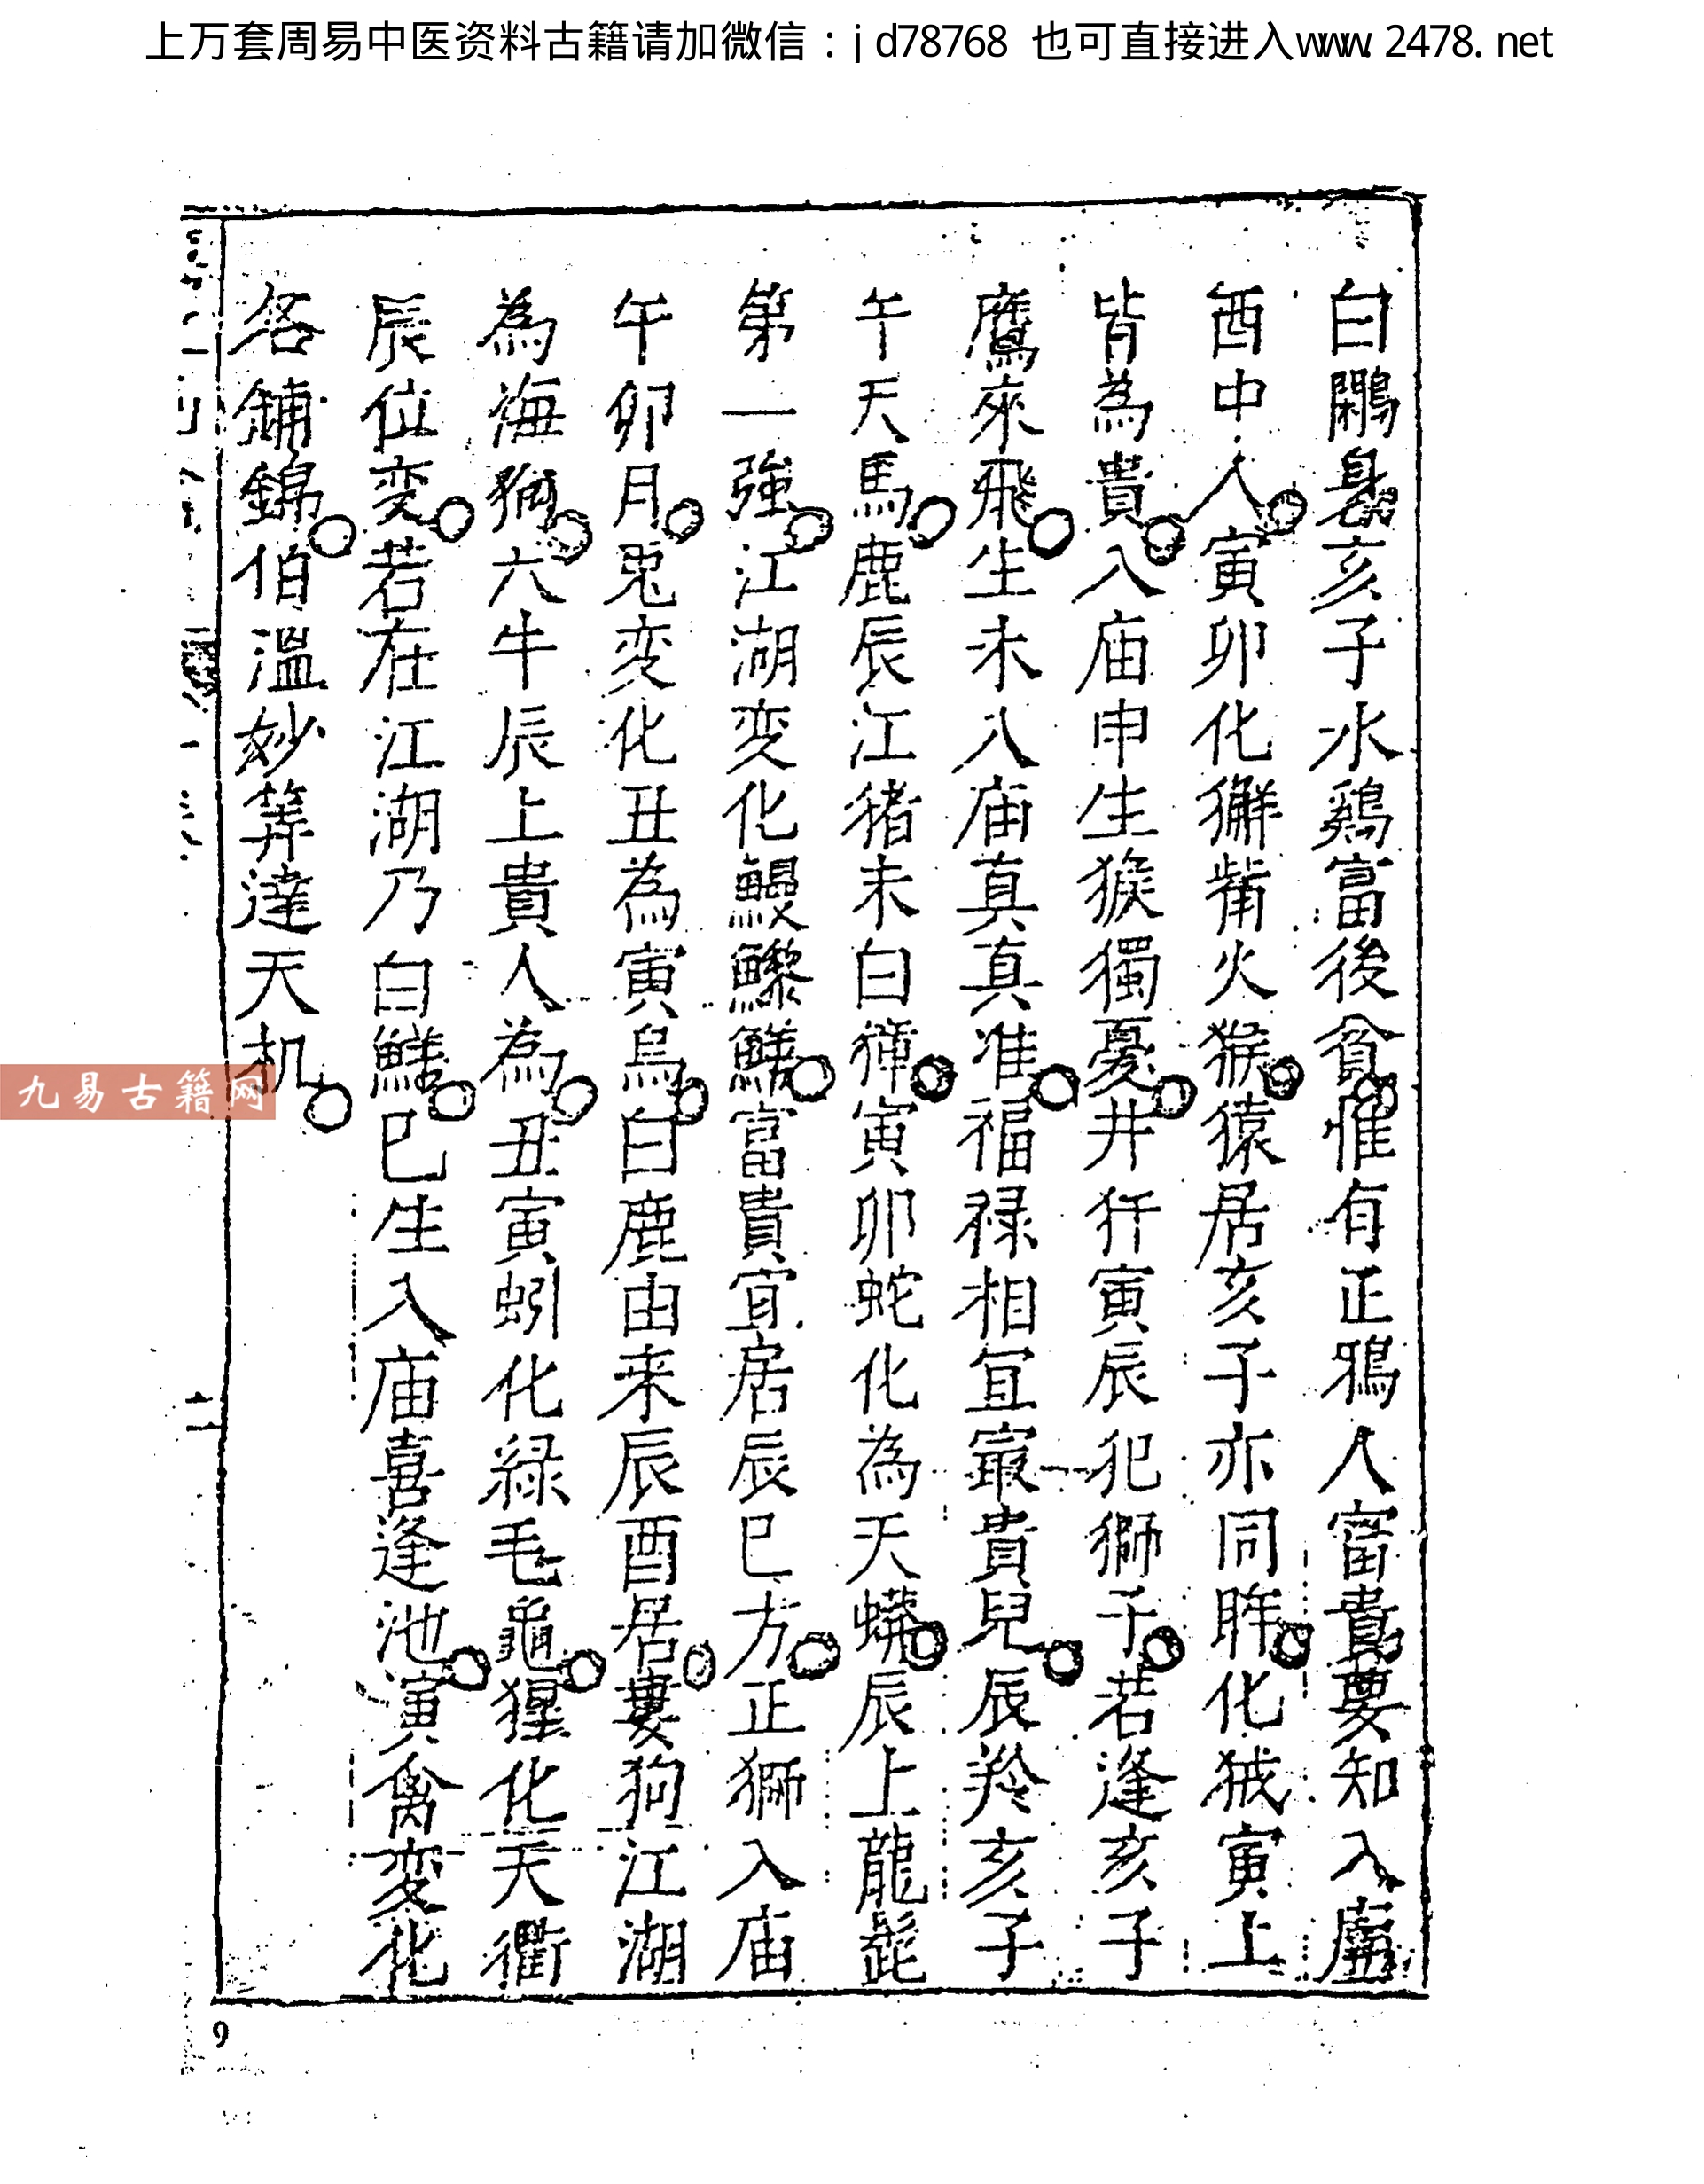 上万套周易中医资料古籍请加微信：jd78768 也可直接进入www.2478.net
白鷳裊亥子水鷄富後貧惟有正鴉人富貴要知入廟
酉中人寅卯化獬觜火猴猿居亥子亦同眸化狨寅上
皆為貴入庙申生猴獨憂井犴寅辰犯獅子若逢亥子
鷹來飛生未入庙真真准福禄相宜寂貴兒辰羚亥子
午天馬鹿辰江猪未白獐寅卯蛇化為天蟒辰上龍髭
第一強江湖变化鰻鱺鱔富貴宜居辰巳方正獅入庙
午卯月兎变化丑為寅烏白鹿由来辰酉居婁狗江湖
為海獅六牛辰上貴人為丑寅蚓化緑毛龜猩化天衢
辰位变若在江湖乃白鱔巳生入庙喜逢池寅禽变化
各鋪錦伯温妙筭達天机
九易古籍网
二
9